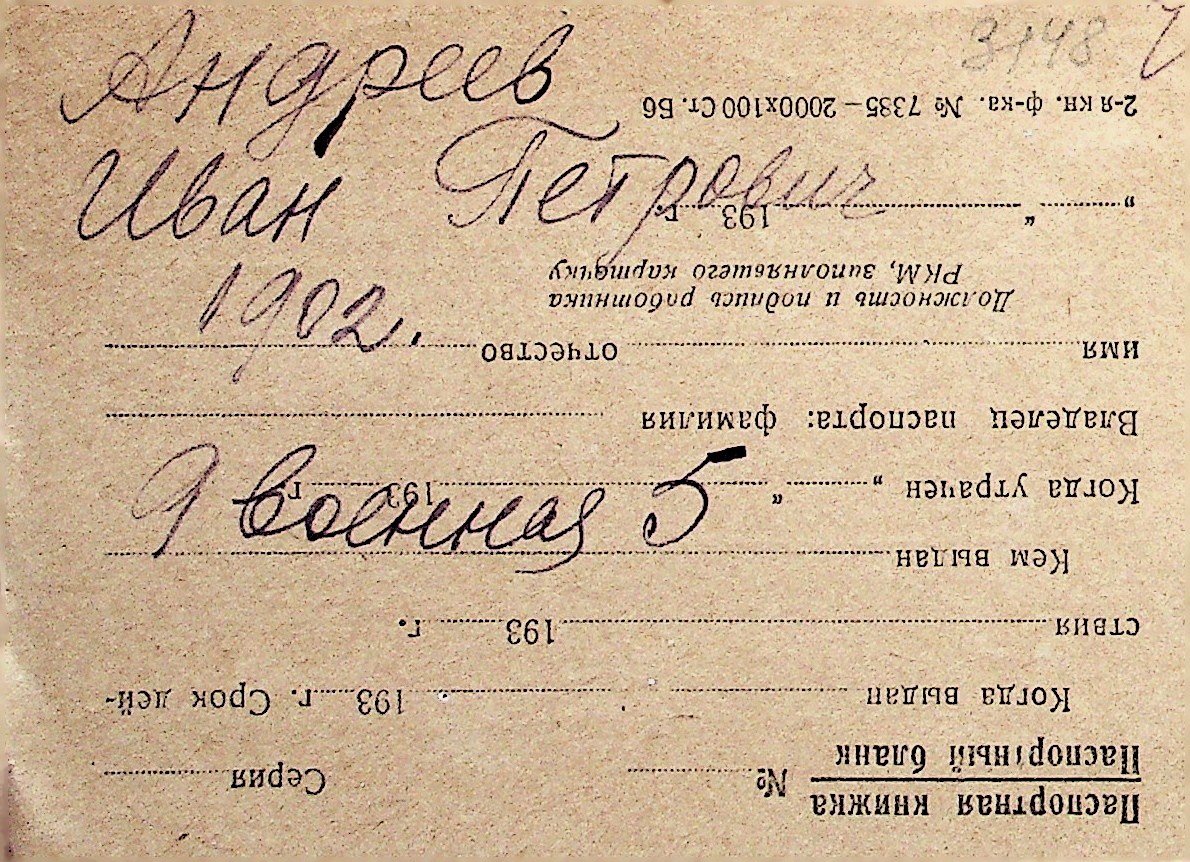 3148
Андреев
Иван Петрович
1902.
9 Военная 5
Паспортная книжка
Паспортный бланк
№ Серия
Когда выдан 193 г. Срок дей-
ствия 193 г.
Кем выдан
Когда утрачен „ “ 193 г.
Владелец паспорта: фамилия
имя отчество
Должность и подпись работника
РКМ, заполнявшего карточку
„ “ 193 г.
2-я кн. ф-ка. № 7385 — 2000х100 Ст. Б6